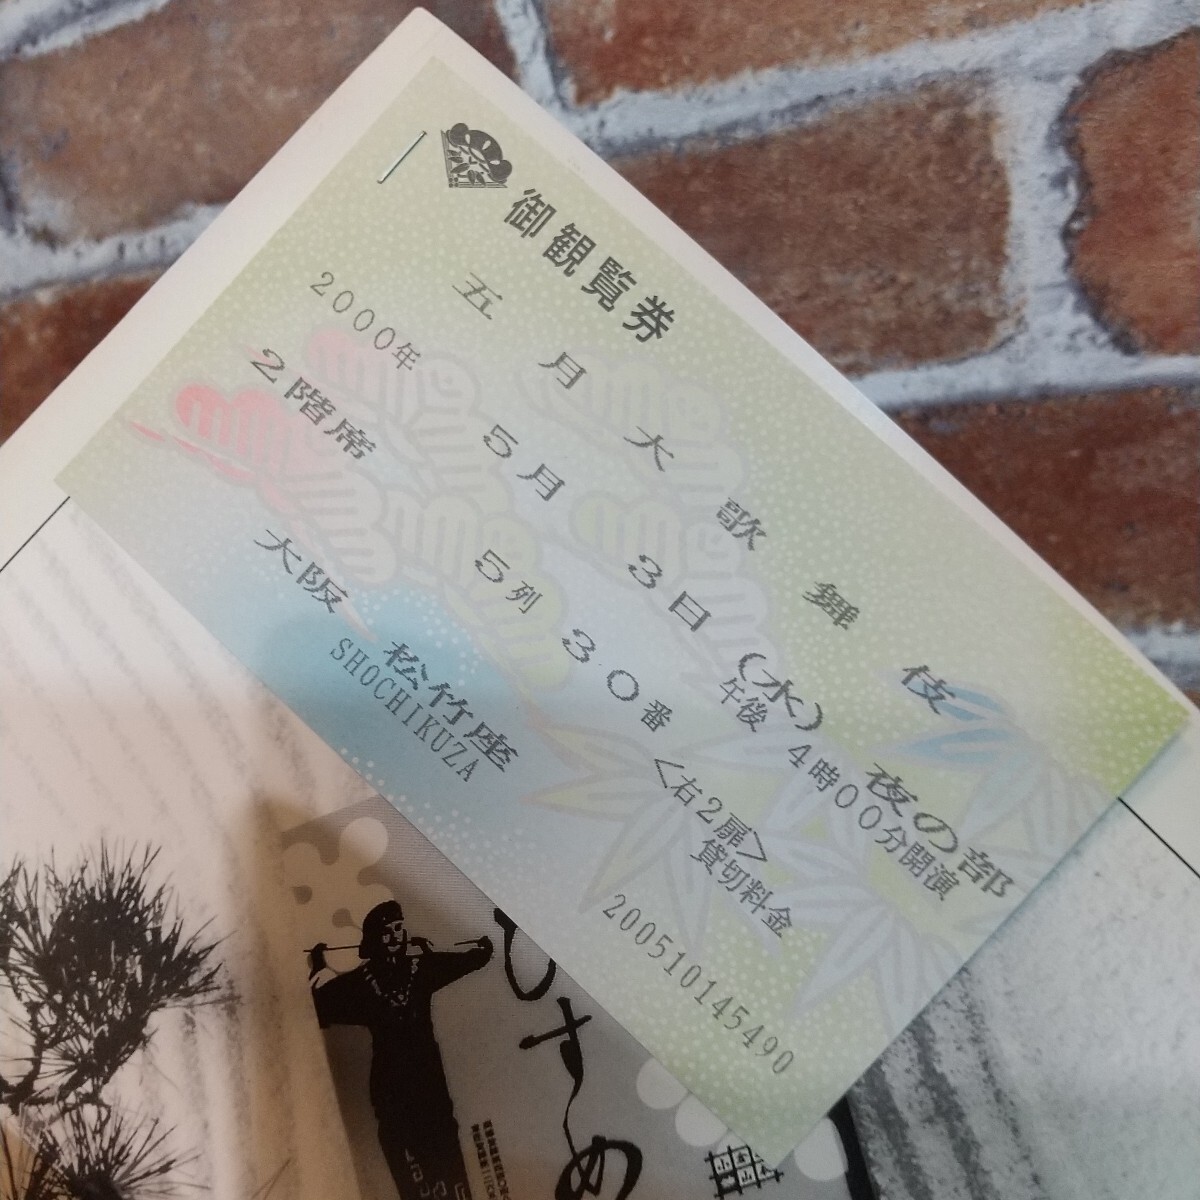 御観覧券
五月大歌舞伎 夜の部
2000年 5月 3日(水) 午後 4時00分開演
2階席 5列 30番 <右2扉>
貸切料金
大阪 松竹座
SHOCHIKUZA
200510145490
ひさめ